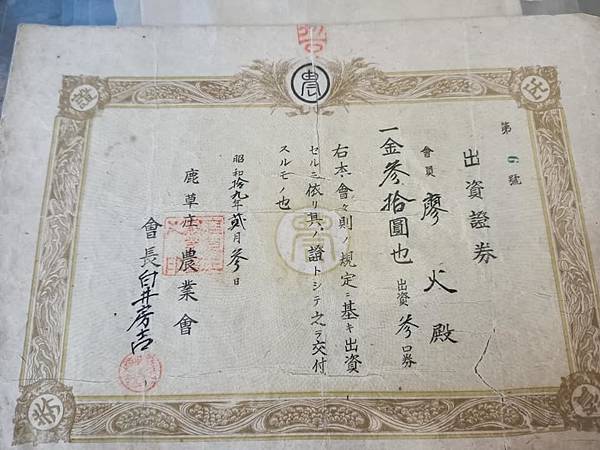 農
證
出資證券
第 號
會員 廖火殿
一金參拾圓也 出資參口券
右本會々則ノ規定ニ基キ出資
セルニ依リ其ノ證トシテ之ヲ交付
スルモノ也
農
昭和拾九年貳月參日
鹿草庄農業會
會長 白井房吉